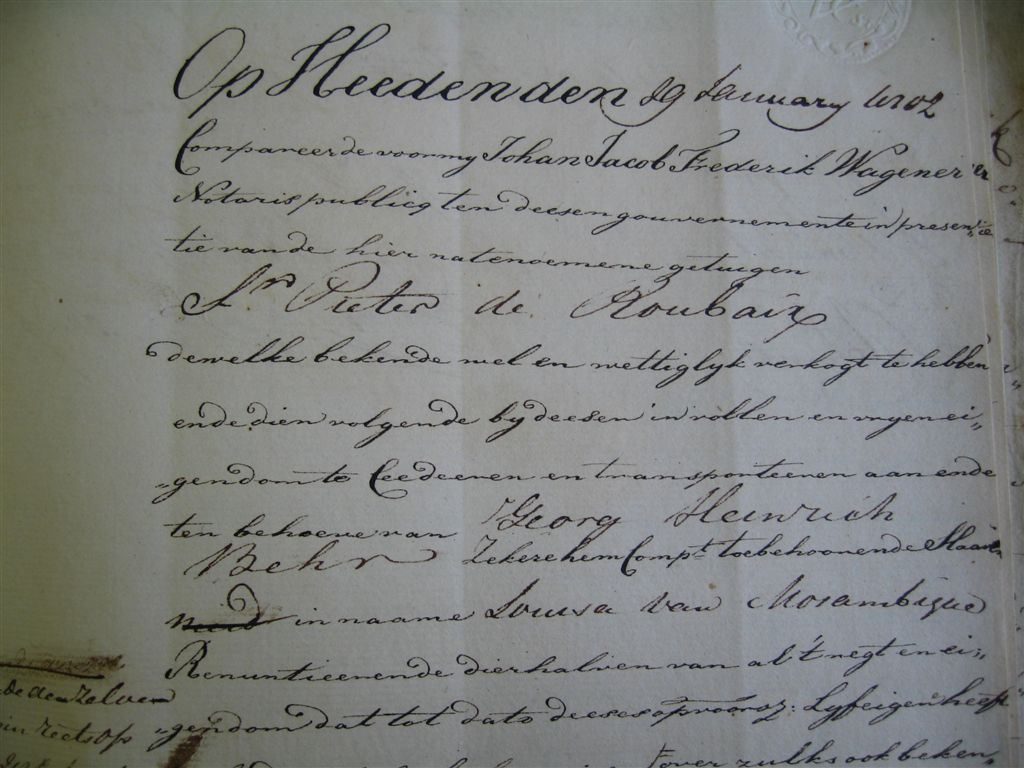 Op Heeden den 29 January 1802
Compareerde voor my Johan Jacob Frederik Wagener
Notaris publicq ten deesen gouvernemente in presen„
tie van de hier natenoemene getuigen
Sr Pieter de Roubaix
dewelke bekende wel en wettiglyk verkogt te hebben
ende dien volgende by deesen in vollen en vryen ei„
„gendom te Cedeeren en transporteeren aan ende
ten behoeve van Georg Heinrich
Behr Zekere hem Compt. toebehoorende Slaaven
meid in naame Louisa van Mosambique
Renuntieerende dierhalven van al 't regt en ei„
de den zelven „gendom dat tot dato deeses op voorsz: Lyfeigen heeft
over zulks ook beken„